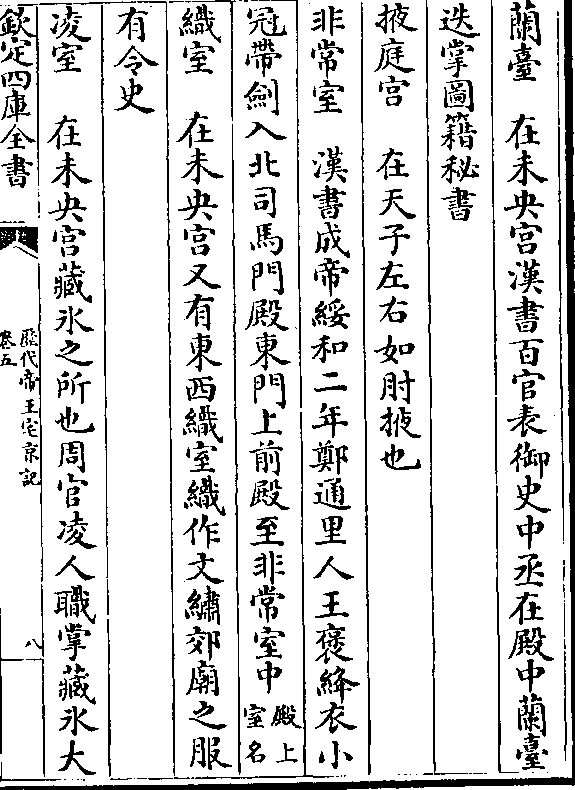 蘭臺　在未央宫漢書百官表御史中丞在殿中蘭臺
迭掌圖籍秘書
掖庭宫　在天子左右如肘掖也
非常室　漢書成帝綏和二年鄭通里人王褒絳衣小
冠帶劍入北司馬門殿東門上前殿至非常室中殿上室名
織室　在未央宫又有東西織室織作文繡郊廟之服
有令史
凌室　在未央宫藏氷之所也周官凌人職掌藏氷大
欽定四庫全書
歷代帝王宅京記
卷五
八